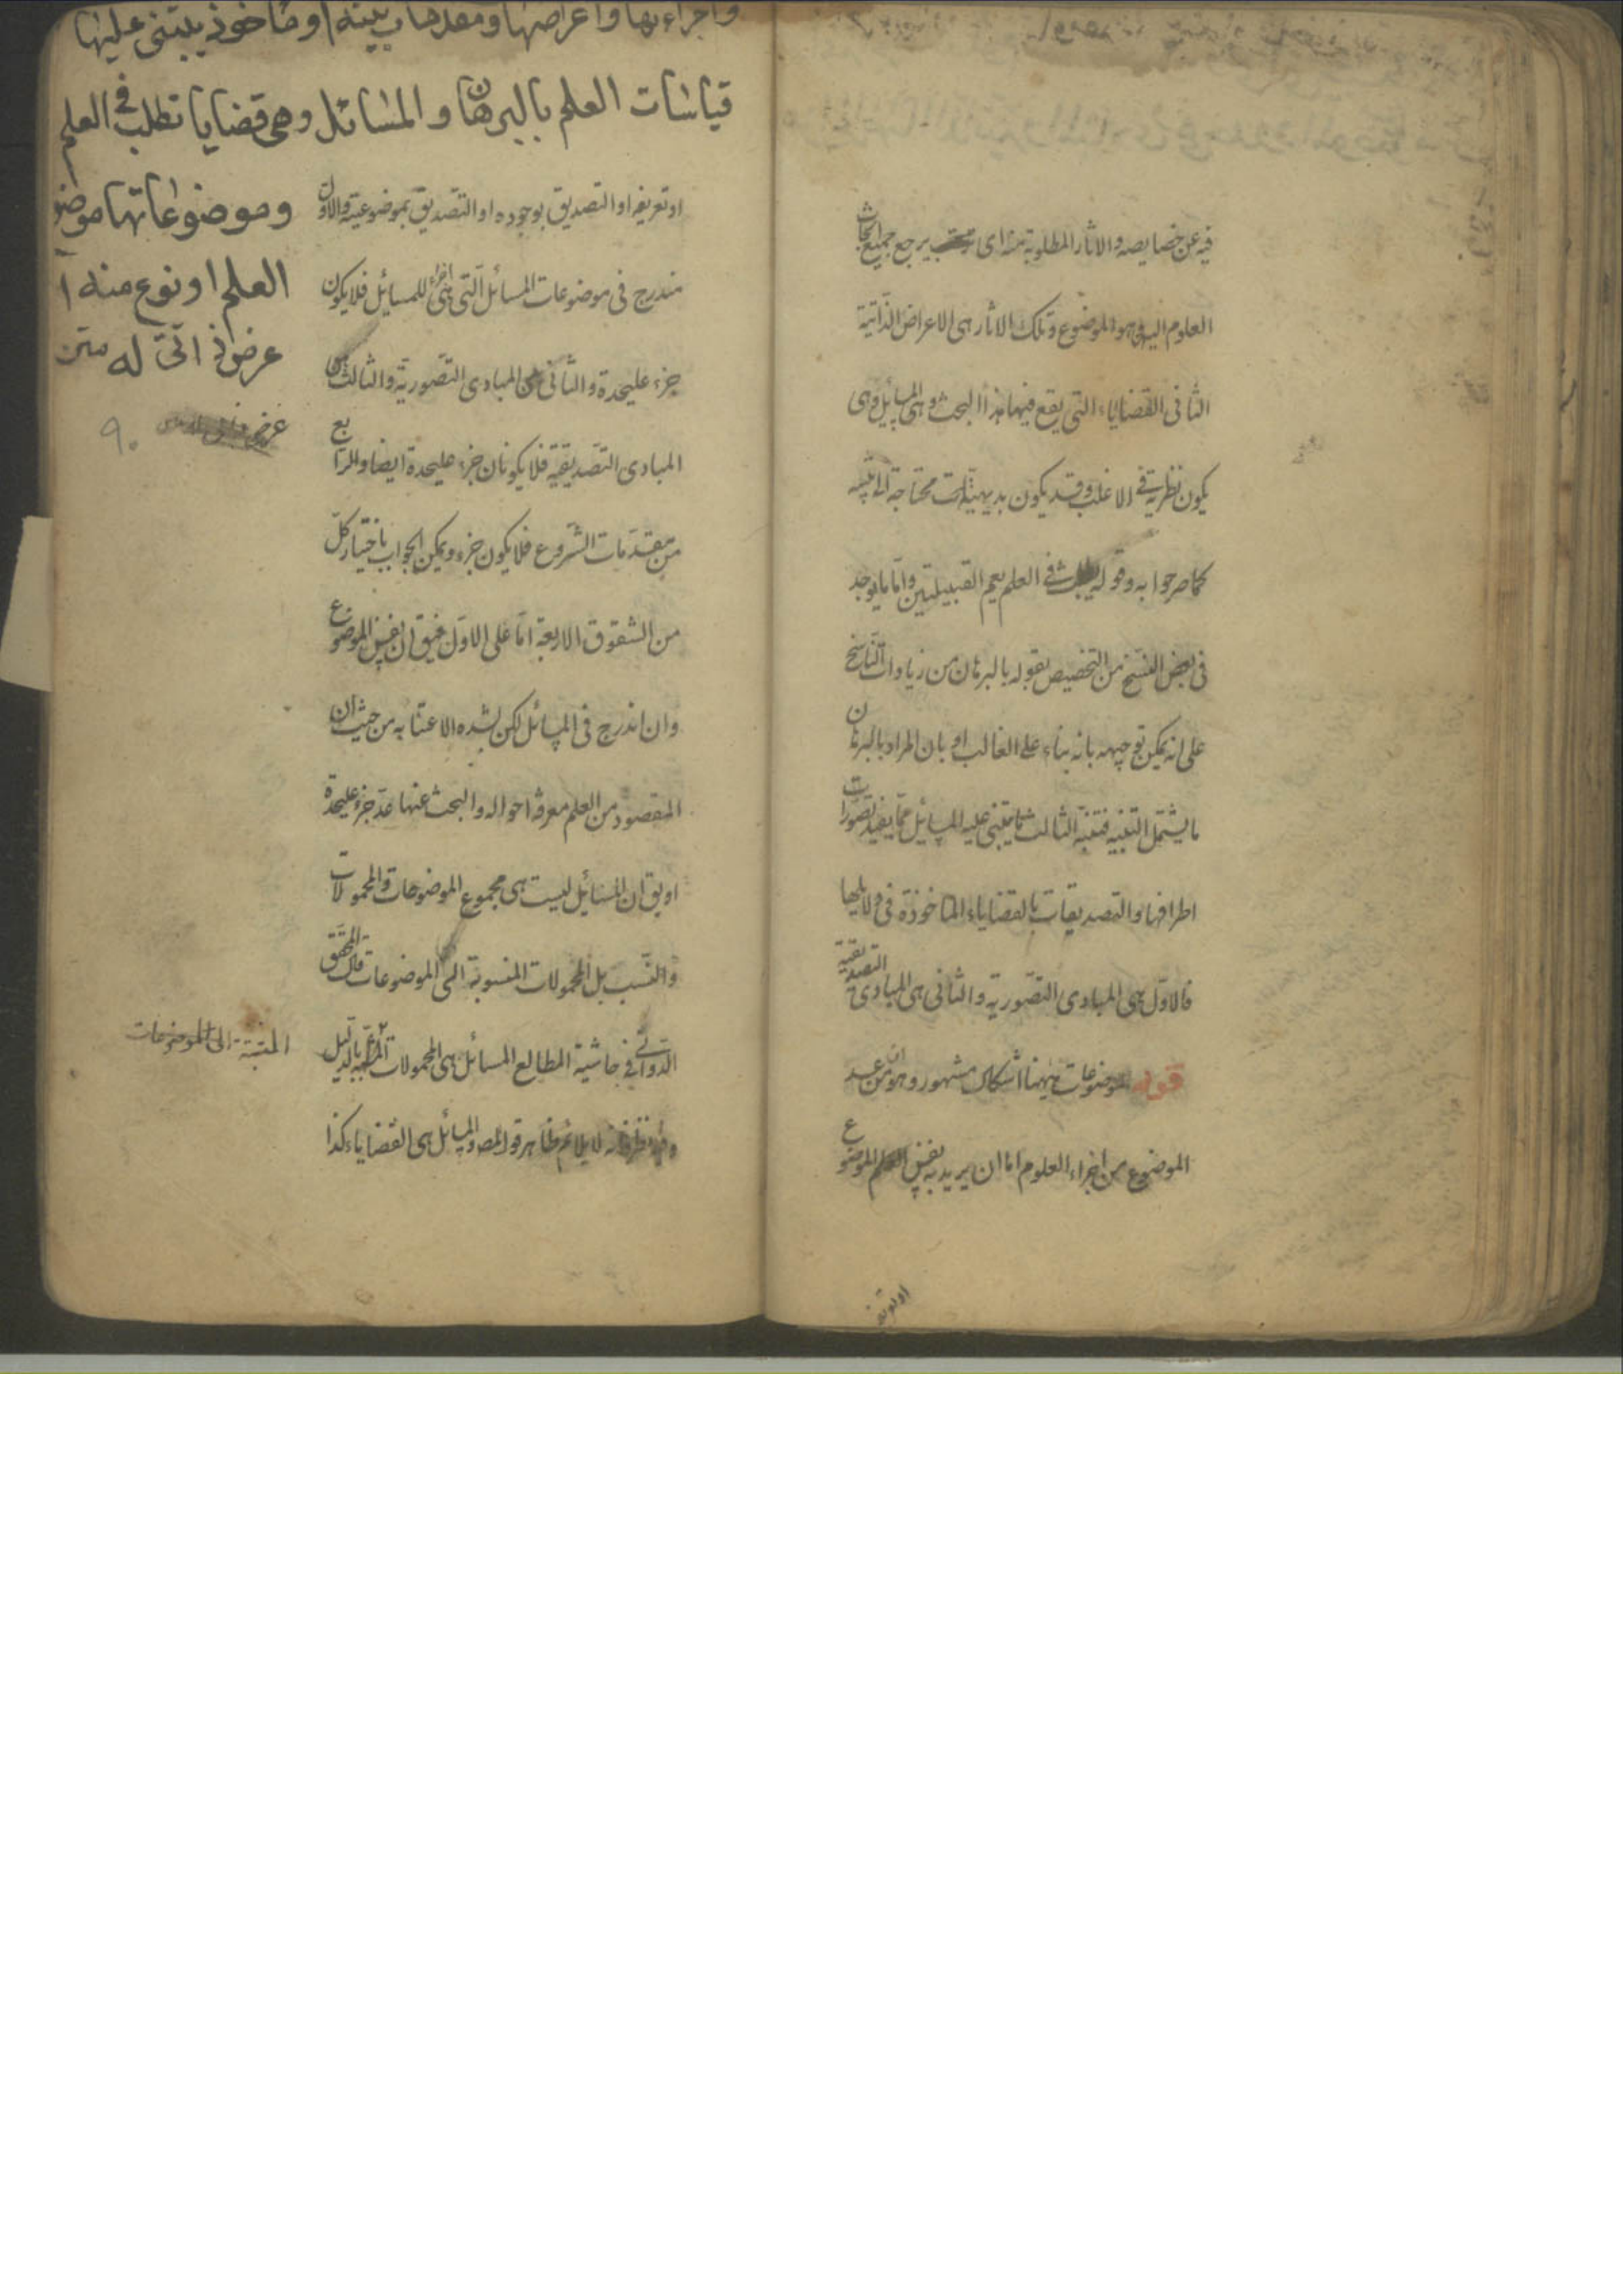 فيه عن خصايصه والاثار المطلوبة منه اى يرجع جميع ابحاث
العلوم اليه وهو الموضوع وتلك الاثار هى الاعراض الذاتية
الثانى القضاياء التى يقع فيها هذا البحث وهى المسائل وهى
يكون نظرية فى الاغلب وقد يكون بديهيات محتاجة الى تنبيه
كما صرحوا به وقوله يطلب فى العلم يعم القبيلتين واما ما يوجد
فى بعض النسخ من التخصيص بقوله بالبرهان من زيادات الناسخ
على انه يمكن توجيهه بانه بناء على الغالب او بان المراد بالبرهان
ما يشتمل التنبيه فتنبه الثالث ما يبتنى عليه المسائل مما يفيد تصورات
اطرافها والتصديقات بالقضاياء الماخوذة فى دلايلها
فالاول هى المبادى التصورية والثانى هى المبادى التصديقية
قوله الموضوعات ههنا اشكال مشهور وهو ان من عد
الموضوع من اجزاء العلوم اما ان يريد به نفس الموضوع
او تعريفه
واجزاءها واعراضها ومقدمات بينة او ماخوذ يبتنى عليها
قياسات العلم بالبرهان والمسائل وهى قضايا تطلب فى العلم
وموضوعاتها موضو
العلم او نوع منه ا
عرض ذاتى له متن
٩٠
او تعريفه او التصديق بوجوده او التصديق بموضوعيته والاول
مندرج فى موضوعات المسائل التى هى اجزاء للمسائل فلا يكون
جزء عليحدة والثانى من المبادى التصورية والثالث من
المبادى التصديقية فلا يكونان جزء عليحدة ايضا والرابع
من مقدمات الشروع فلا يكون جزء ويمكن الجواب باختيار كل
من الشقوق الاربعة اما على الاول فيق ان نفس الموضوع
وان اندرج فى المسائل لكن لشدة الاعتنا به من حيث ان
المقصود من العلم معرفة احواله والبحث عنها عد جزء عليحدة
او يق ان المسائل ليست هى مجموع الموضوعات والمحمولات
والنسب بل المحمولات المنسوبة الى الموضوعات قال المحقق
الدوانى فى حاشية المطالع المسائل هى المحمولات المثبتة بالدليل
المثبتة الى الموضوعات
وفيه نظر فانه لا يلائم ظاهر قول المص والمسائل هى القضاياء كذا